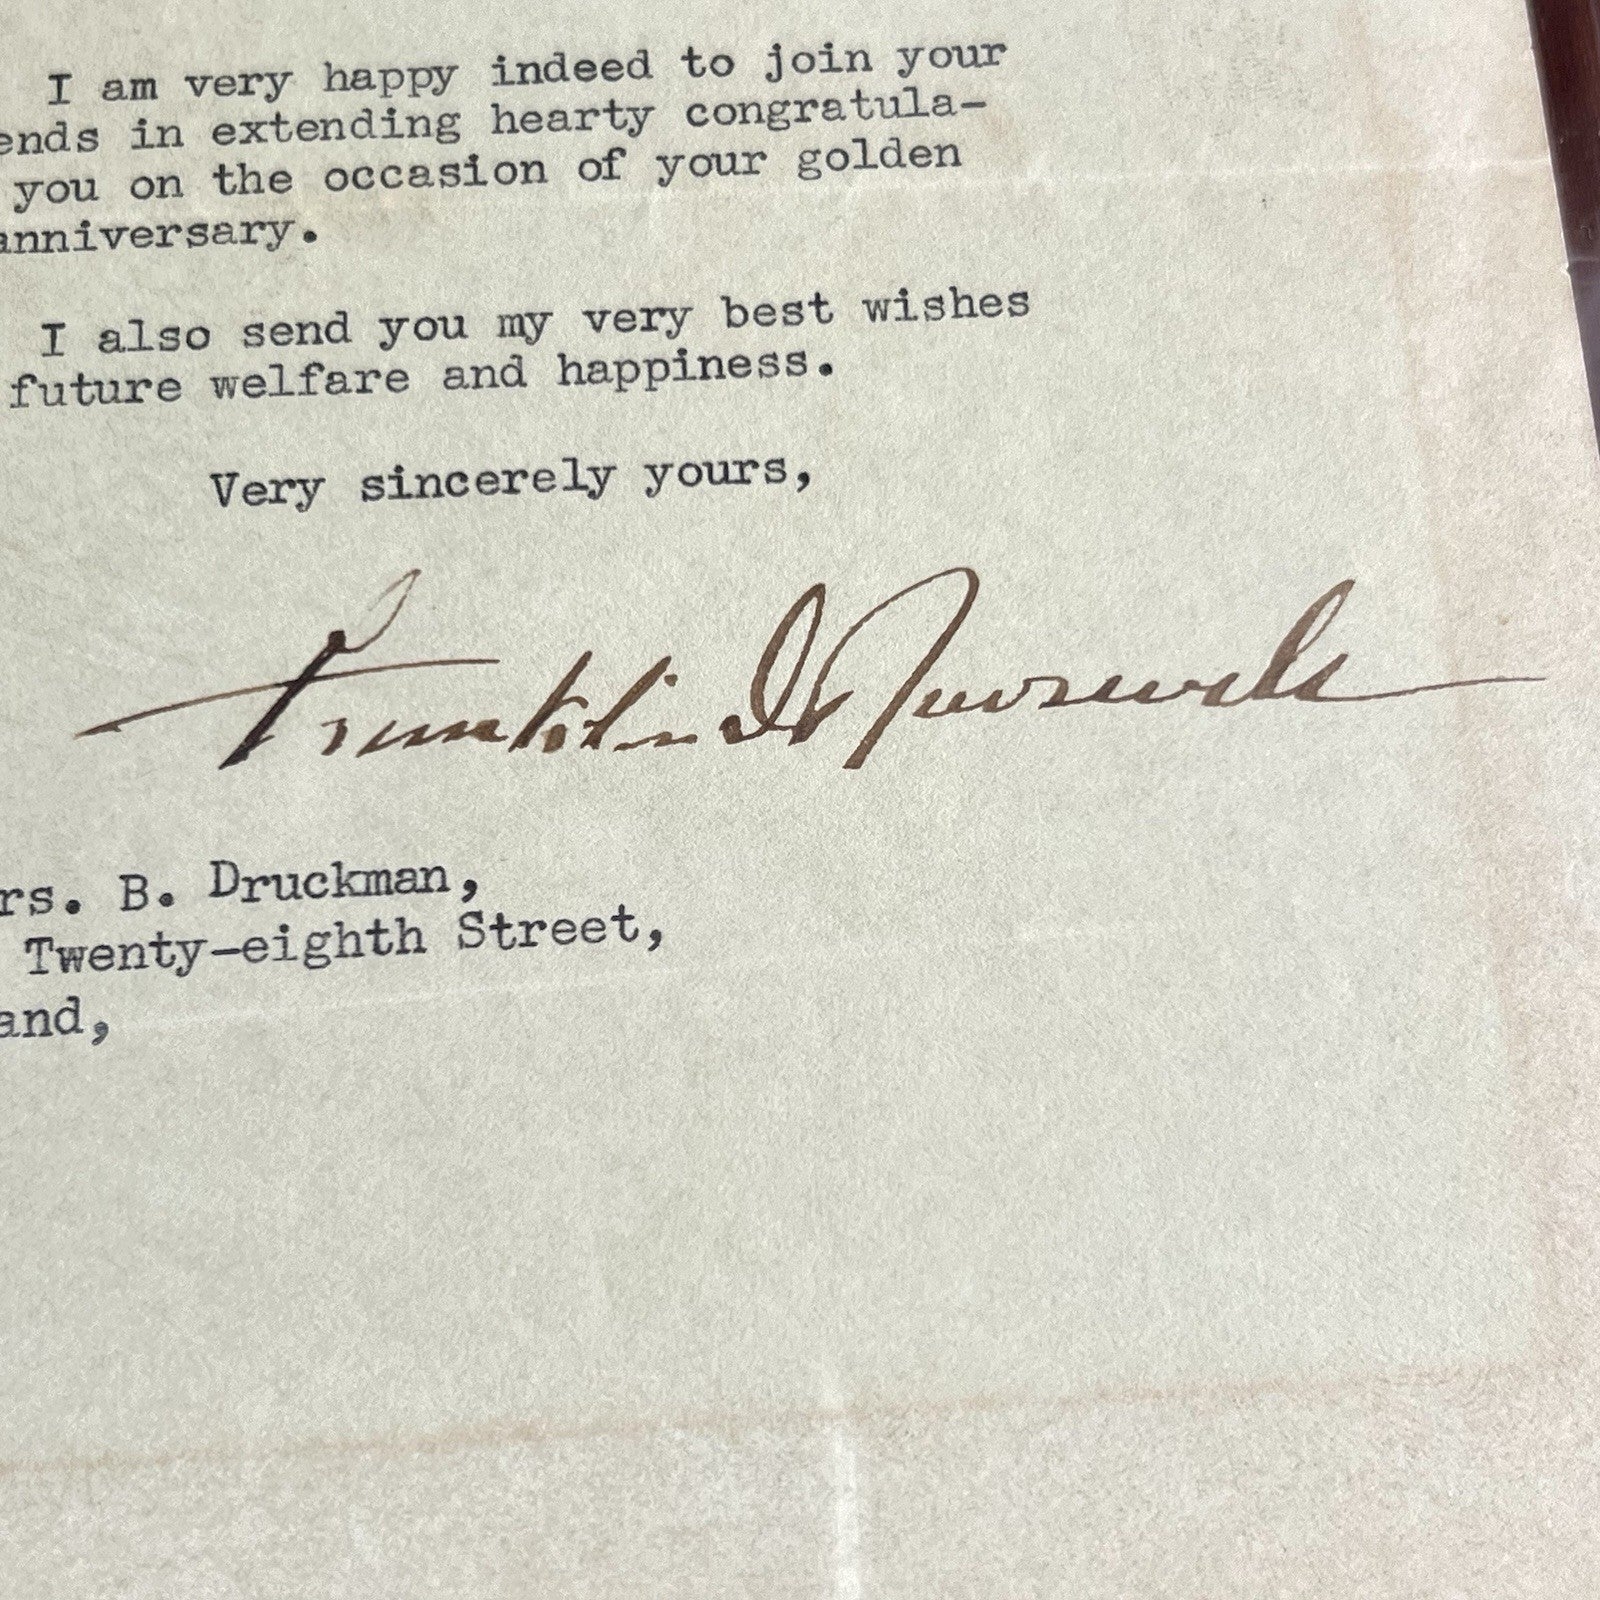 I am very happy indeed to join your
ends in extending hearty congratula-
you on the occasion of your golden
anniversary.
I also send you my very best wishes
future welfare and happiness.
Very sincerely yours,
Franklin D Roosevelt
rs. B. Druckman,
Twenty-eighth Street,
and,